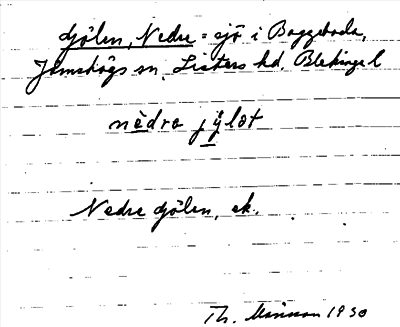 Gölen, Nedre = sjö i Baggeboda,
Jämshögs sn, Listers hd. Blekinge l
nèdra jýlət
Nedre Gölen, ek.
Th. Månsson 1930